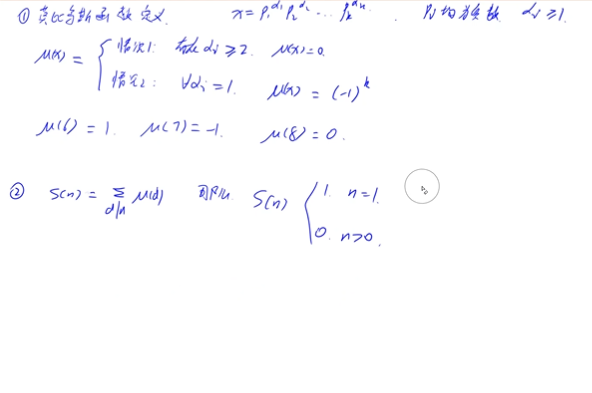 ① 莫比乌斯函数定义. x = p₁^α₁ p₂^α₂ ⋯ pₖ^αₖ. pᵢ 均为质数 αᵢ ≥ 1.
μ(x) = { 情况1: 存在 αᵢ ≥ 2. μ(x) = 0.
情况2: ∀αᵢ = 1. μ(x) = (-1)^k
μ(6) = 1. μ(7) = -1. μ(8) = 0.
② S(n) = Σ_{d|n} μ(d) S(n) { 1. n = 1.
0. n > 0.